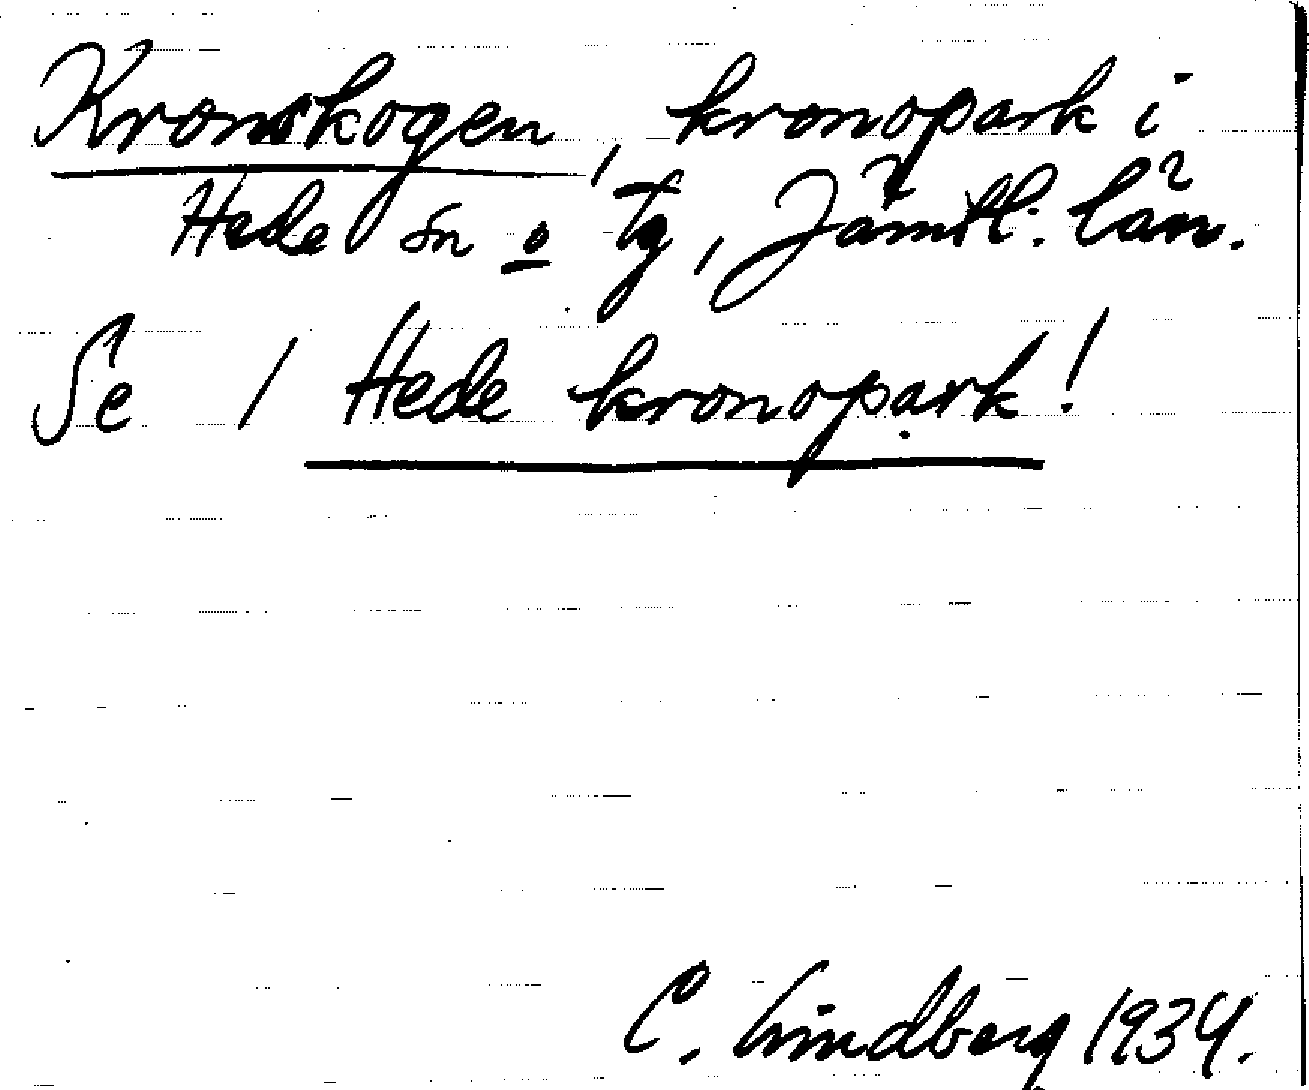 Kronskogen, kronopark i
Hede sn o tg, Jämtl. län.
Se / Hede kronopark!
C. Lindberg 1934.